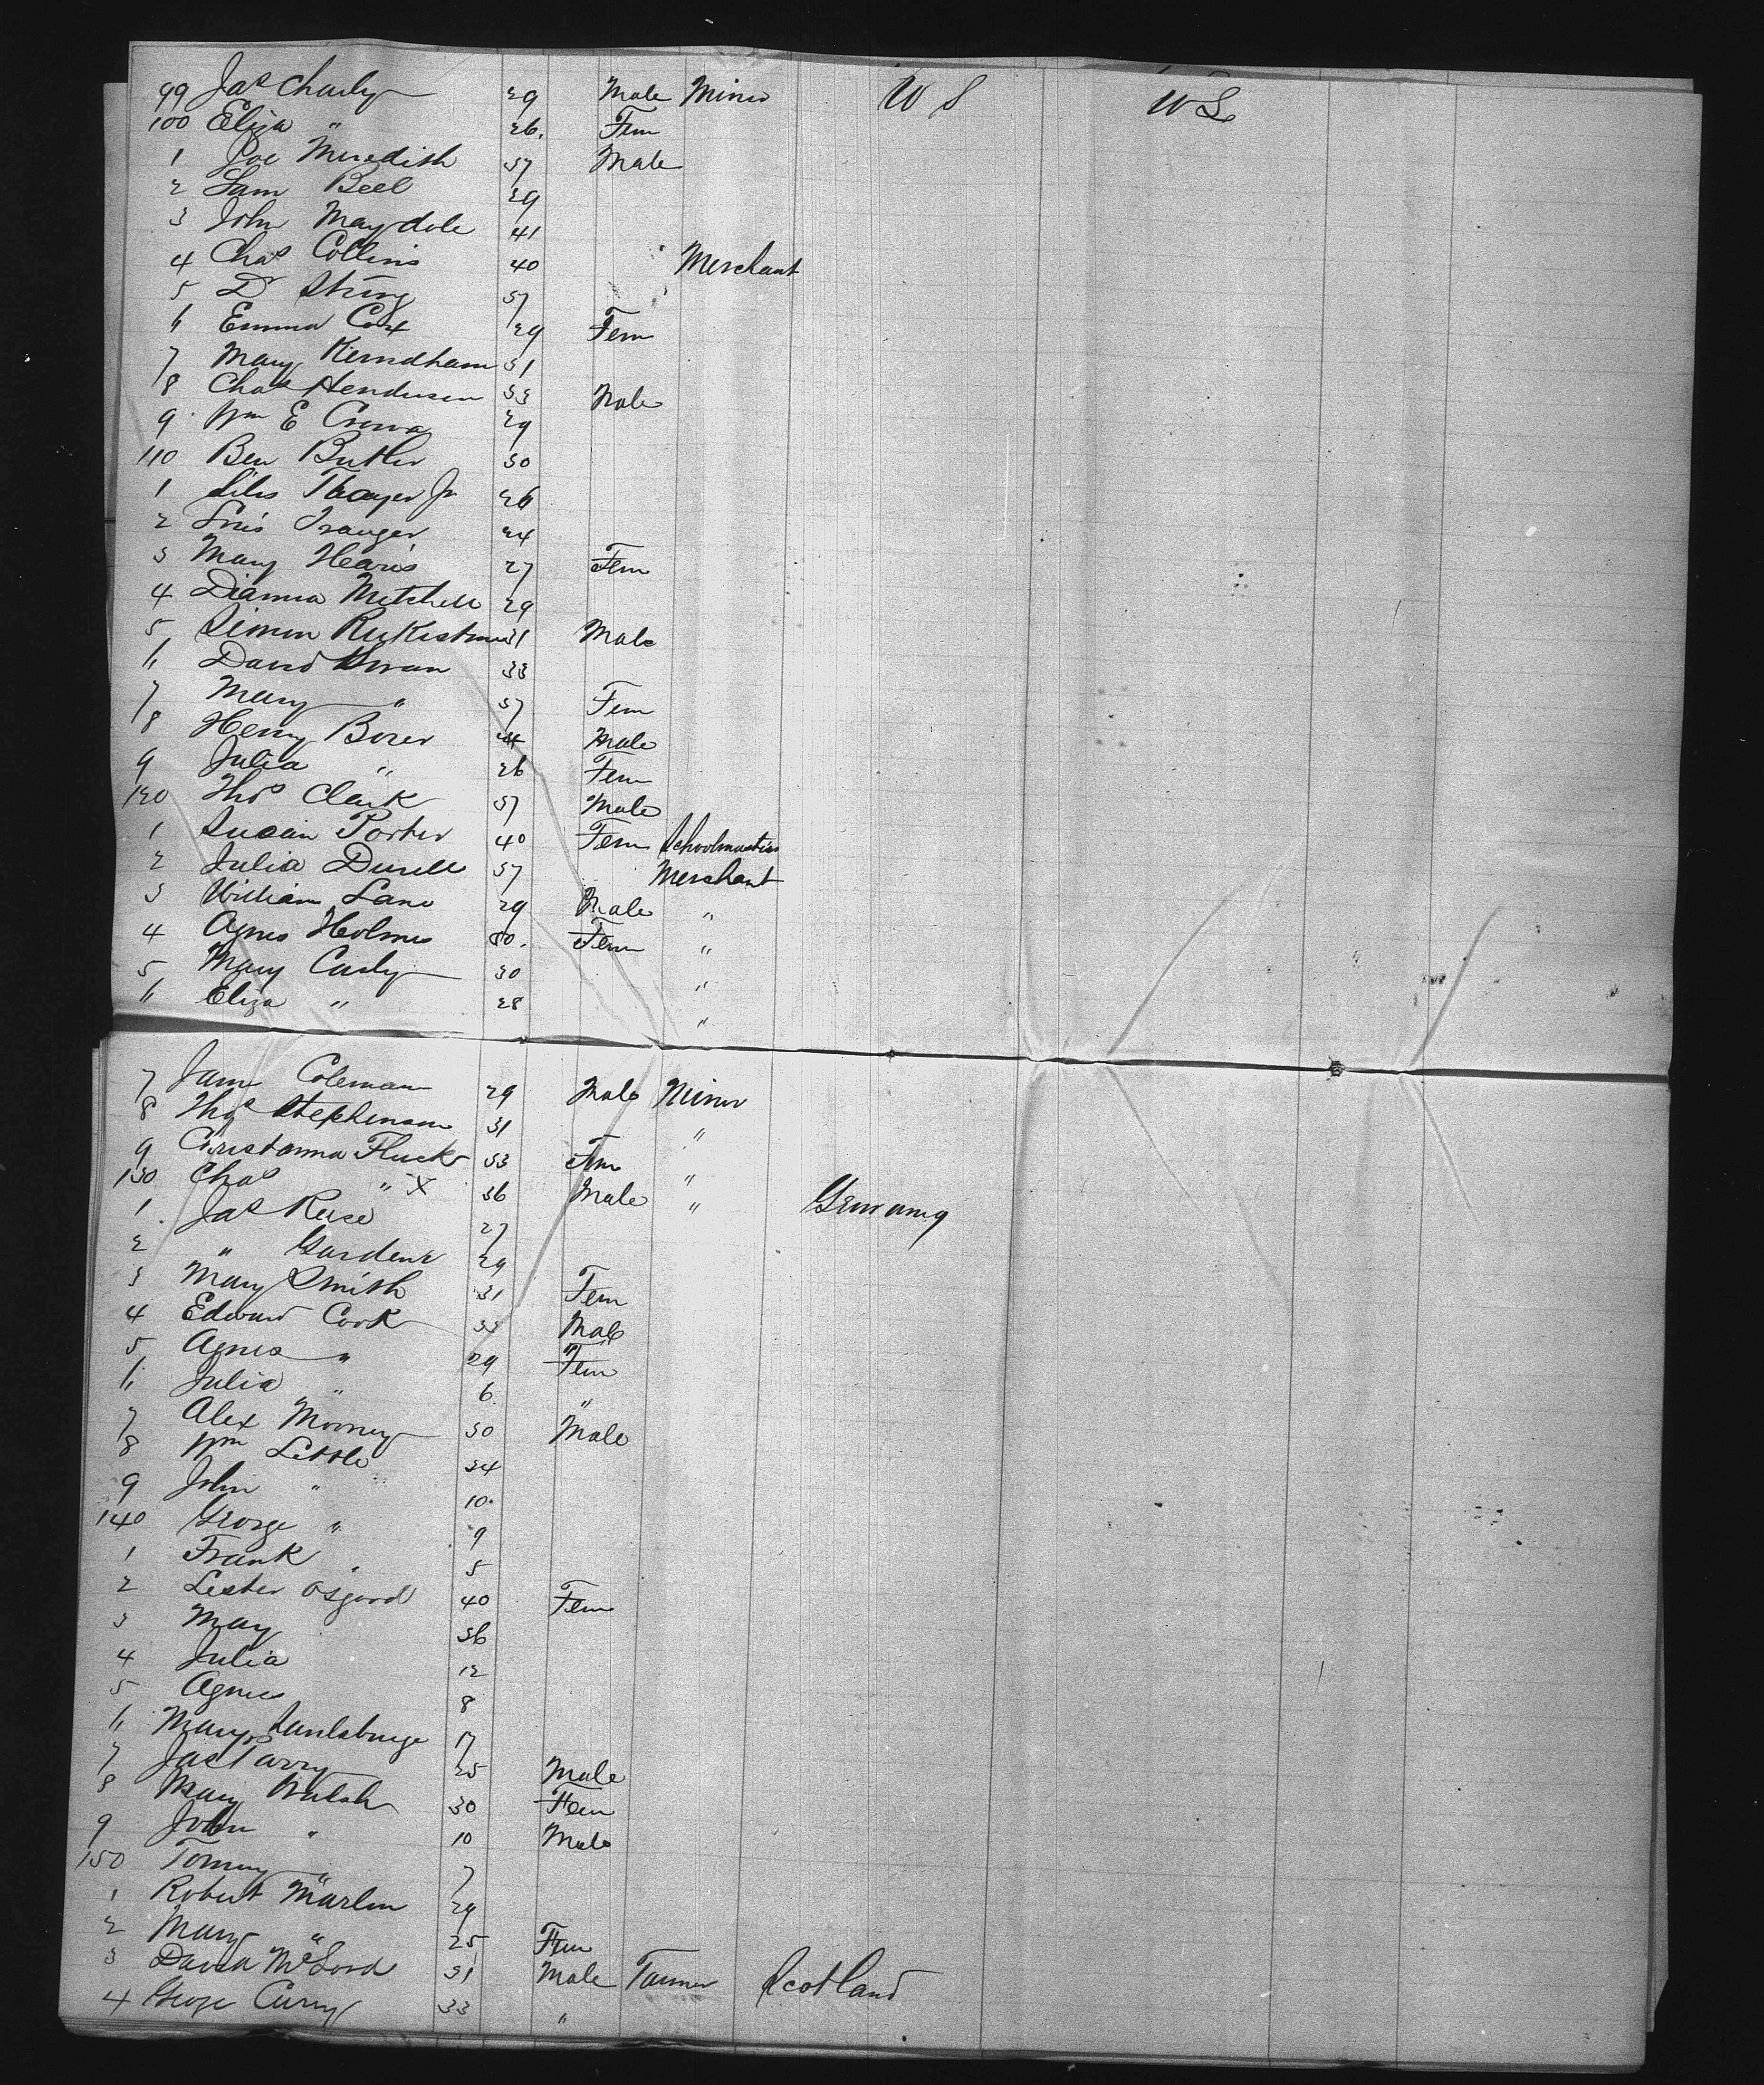 99 Jas Charly 29 Male Miner U S U S
100 Eliza " 26. Fem
1 Joe Meredith 37 Male
2 Sam Beel 29
3 John Maydole 41
4 Chas Collins 40 Merchant
5 Dr Strong 37
6 Emma Cox 29 Fem
7 Mary 31
8 Chas Henderson 33 Male
9 Wm E 29
110 Ben Butler 30
1 Silas Thayer Jr 26
2 24
3 Mary 27 Fem
4 Dianna Mitchell 29
5 Simon 31 Male
6 David 33
7 Mary " 37 Fem
8 Henry 24 Male
9 Julia " 26 Fem
120 Thos Clark 37 Male
1 Susan Porter 40 Fem Schoolmistress
2 Julia Durell 37 Merchant
3 William Lane 29 Male "
4 Agnes Holmes 30. Fem "
5 Mary Carly 30 "
6 Eliza " 28 "
7 Coleman 29 Male Miner
8 Thos Stephenson 31 "
9 Cristanna Fluck 33 Fem "
130 Chas " X 36 Male " Germany
1 Jas 27
2 " Gardener 29
3 Mary Smith 31 Fem
4 Edward Cook 33 Male
5 Agnes " 29 Fem
6 Julia " 6 "
7 Alex Mooney 30 Male
8 Wm Little 34
9 John " 10
140 George " 9
1 Frank 5
2 Lester Osgood 40 Fem
3 May 36
4 Julia 12
5 Agnes 8
6 Mary 17
7 Jas Parry 25 Male
8 Mary Walsh 30 Fem
9 John " 10 Male
150 Tommy " 7
1 Robert Marlin 29
2 Mary " 25 Fem
3 David 31 Male Scotland
4 George Curry 33 "